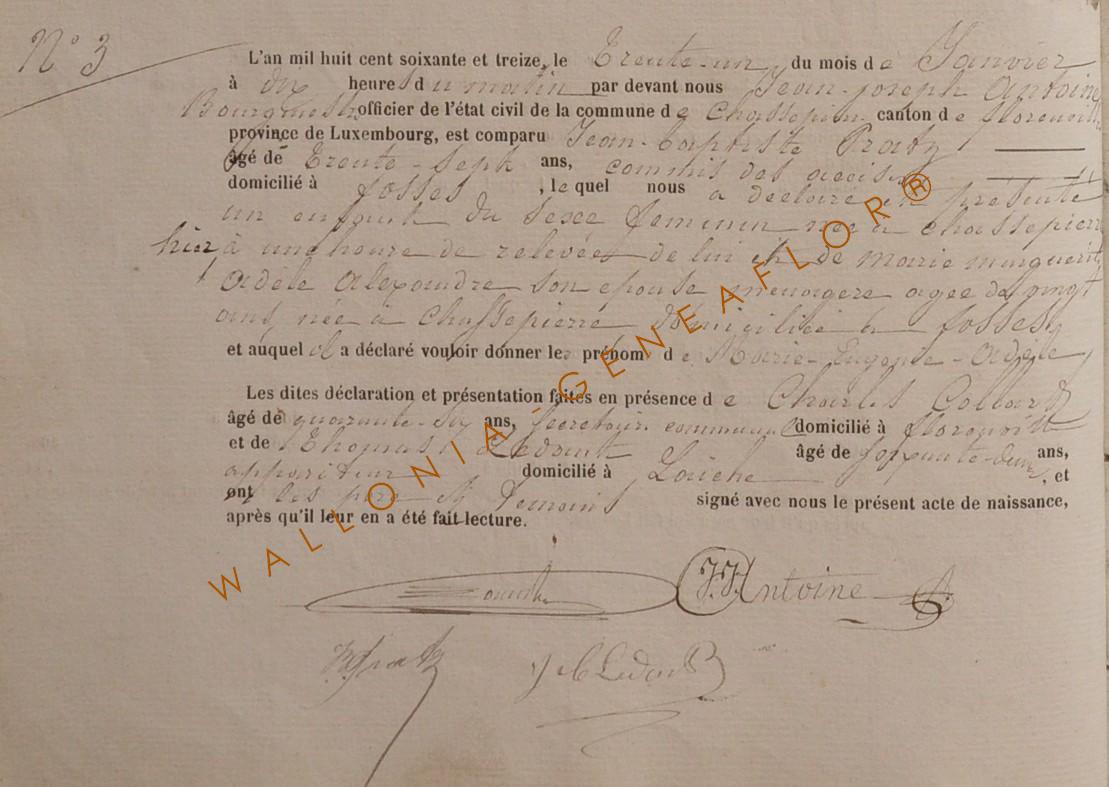 N° 3
L'an mil huit cent soixante et treize, le Trente-un du mois de Janvier
à dix heures du matin par devant nous Jean-Joseph Antoine
Bourgmestre officier de l'état civil de la commune de Chassepierre canton de Florenville
province de Luxembourg, est comparu Jean-Baptiste Pratz
âgé de Trente-sept ans, commis des accises
domicilié à fosses, le quel nous a déclaré et présenté
un enfant du sexe féminin née à Chassepierre
hier, à une heure de relevées de lui et de Marie Marguerite
Adèle Alexandre son épouse ménagère agée de vingt
ans, née à Chassepierre domiciliée à fosses,
et auquel il a déclaré vouloir donner les prénom de Marie-Eugénie-Adèle,
Les dites déclaration et présentation faites en présence de Charles Collard
âgé de quarante-six ans, Secrétaire communal domicilié à florenville
et de Thomas Ledent âgé de soixante-deux ans,
appariteur domicilié à Laiche, et
ont les père et témoins signé avec nous le présent acte de naissance,
après qu'il leur en a été fait lecture.
J.J. Antoine
WALLONIA-GENEAFLOR®